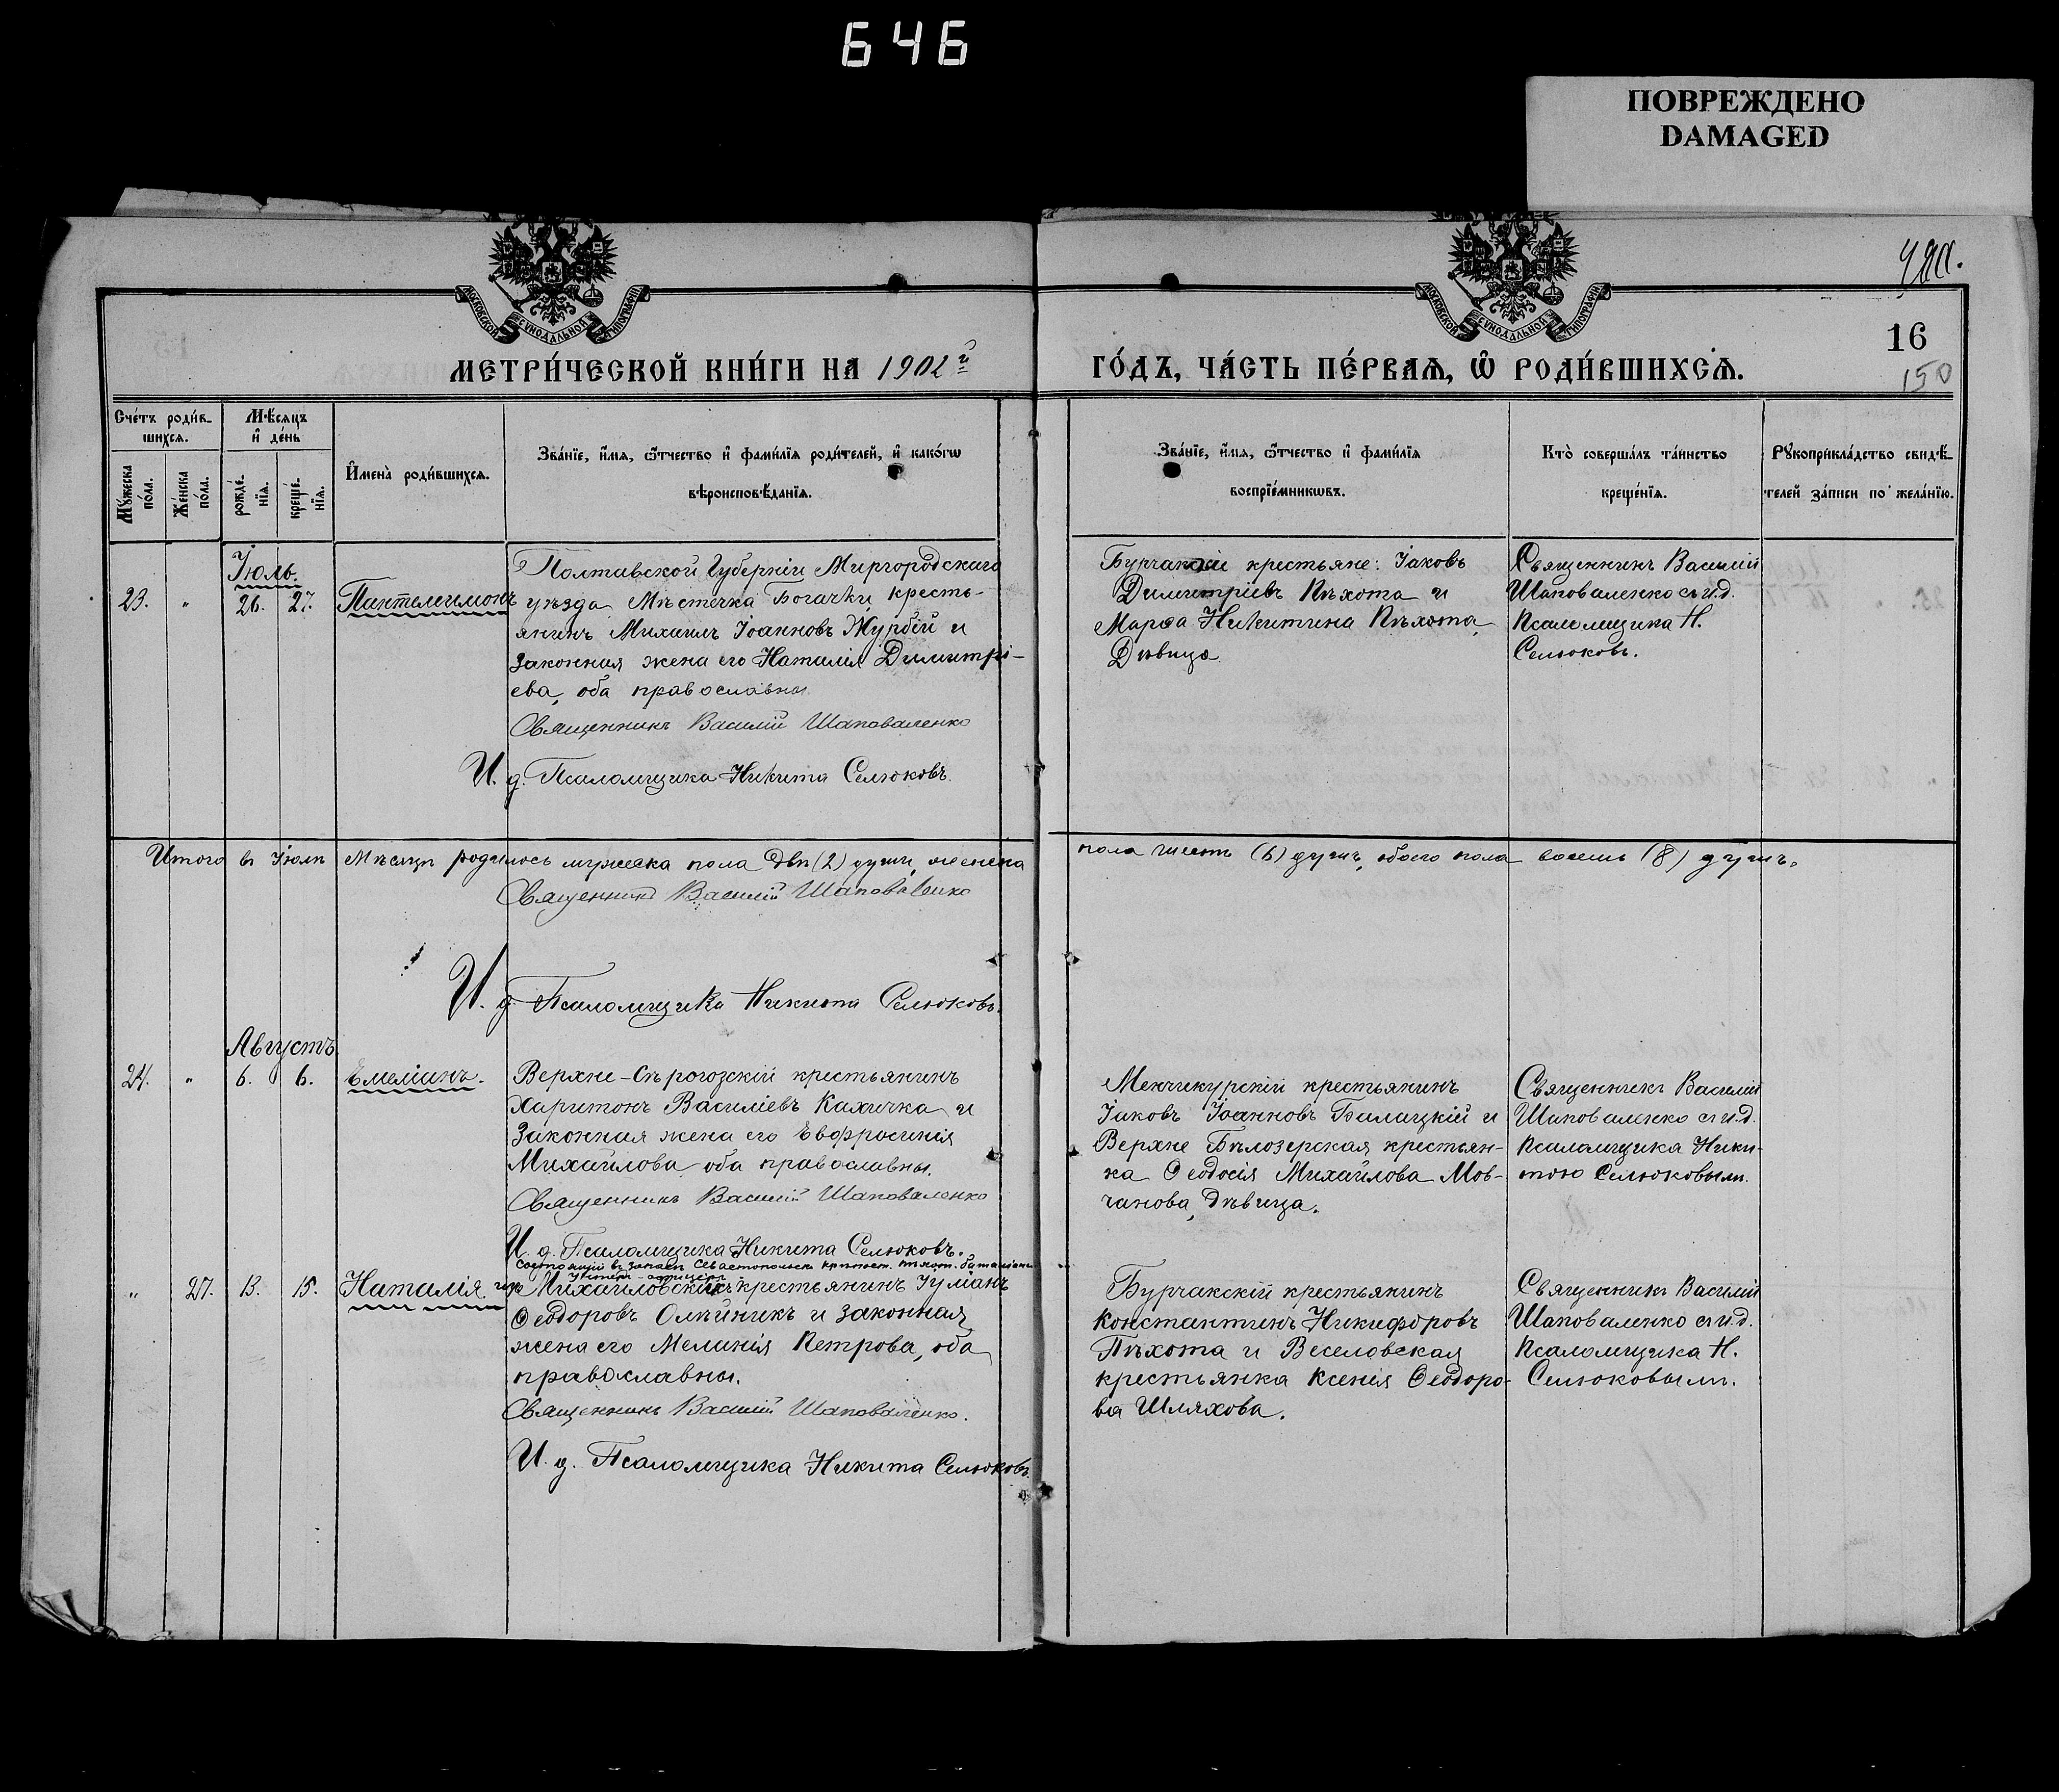 646
ПОВРЕЖДЕНО
DAMAGED
МОСКОВСКОЙ СѴНОДАЛЬНОЙ ТИПОГРАФІИ
МОСКОВСКОЙ СѴНОДАЛЬНОЙ ТИПОГРАФІИ
16
150
МЕТРИ́ЧЕСКОЙ КНИ́ГИ НА 1902й
ГО́ДЪ, ЧА́СТЬ ПЕ́РВАѦ, Ѡ҆ РОДИ́ВШИХСѦ.
Сче́тъ роди́в-
шихсѧ.
Мѣ́сѧцъ
и҆ де́нь
Мꙋ́жеска
по́ла.
Же́нска
по́ла.
рожде́-
нїѧ.
креще́-
нїѧ.
И҆мена̀ роди́вшихсѧ.
Зва́нїе, и҆́мѧ, ѻ҆́тчество и҆ фами́лїѧ роди́телей, и҆ како́гѡ
вѣроисповѣ́данїѧ.
Зва́нїе, и҆́мѧ, ѻ҆́тчество и҆ фами́лїѧ
воспрїе́мникѡвъ.
Кто̀ соверша́лъ та́инство
креще́нїѧ.
Рꙋкоприкла́дство свидѣ́-
телей за́писи по жела́нїю.
Іюль.
23. " 26. 27. Пантелимонъ
Полтавской Губерніи Миргородскаго
уѣзда Мѣстечка Богачки кресть-
янинъ Михаилъ Іоанновъ Журбій и
законная жена его Наталія Димитрі-
ева, оба православны
Священникъ Василій Шаповаленко
И. д. Псаломщика Никита Селюковъ.
Бурчакскіе крестьяне: Іаковъ
Димитріевъ Пѣхота и
Марѳа Никитина Пѣхота,
Дѣвица
Священникъ Василій
Шаповаленко съ и.д.
Псаломщика Н.
Селюковъ.
Итого въ Іюлѣ Мѣсяцѣ родилось мужеска пола двѣ (2) души, женска
пола шесть (6) душъ, обоего пола восемь (8) душъ.
Священникъ Василій Шаповаленко
И. д. Псаломщика Никита Селюковъ.
Августъ
24. " 6. 6. Емеліанъ.
Верхне-Сѣрогозскій крестьянинъ
Харитонъ Василіевъ Кахичка и
законная жена его Евфросинія
Михайлова оба православны.
Священникъ Василій Шаповаленко
И. д. Псаломщика Никита Селюковъ.
Менчикурскій крестьянинъ
Іаковъ Іоанновъ Билицкій и
Верхне Бѣлозерская крестьян-
ка Ѳеодосія Михайлова Мов-
чанова, Дѣвица.
Священникъ Василій
Шаповаленко съ и.д.
Псаломщика Ники-
тою Селюковымъ.
состоящій въ запасѣ Севастопольск. крѣпост. пѣхот. баталіона
унтеръ-офицеръ
" 27. 13. 15. Наталія.
Михайловскій крестьянинъ Іуліанъ
Ѳеодоровъ Олѣйникъ и законная
жена его Меланія Петрова, оба
православны.
Священникъ Василій Шаповаленко.
И. д. Псаломщика Никита Селюковъ.
Бурчакскій крестьянинъ
Константинъ Никифоровъ
Пѣхота и Веселовская
крестьянка Ксенія Ѳеодоро-
ва Шляхова.
Священникъ Василій
Шаповаленко съ и.д.
Псаломщика Н.
Селюковымъ.